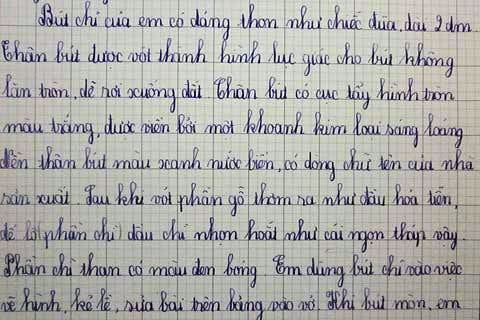 Bút chì của em có dáng thon như chiếc đũa, dài 2 dm.
Thân bút được vót thành hình lục giác cho bút không
lăn tròn, dễ rơi xuống đất. Thân bút có cục tẩy hình tròn
màu trắng, được viền bởi một khoanh kim loại sáng loáng
Nền thân bút màu xanh nước biển, có dòng chữ tên của nhà
sản xuất. Sau khi vót phần gỗ thơm ra như đầu hoả tiễn,
để lộ (phần chì) đầu chì nhọn hoắt như cái ngọn tháp vậy.
Phần chì than có màu đen bóng. Em dùng bút chì vào việc
vẽ hình, kẻ lề, sửa bài trên bảng vào vở. Khi bút mòn, em